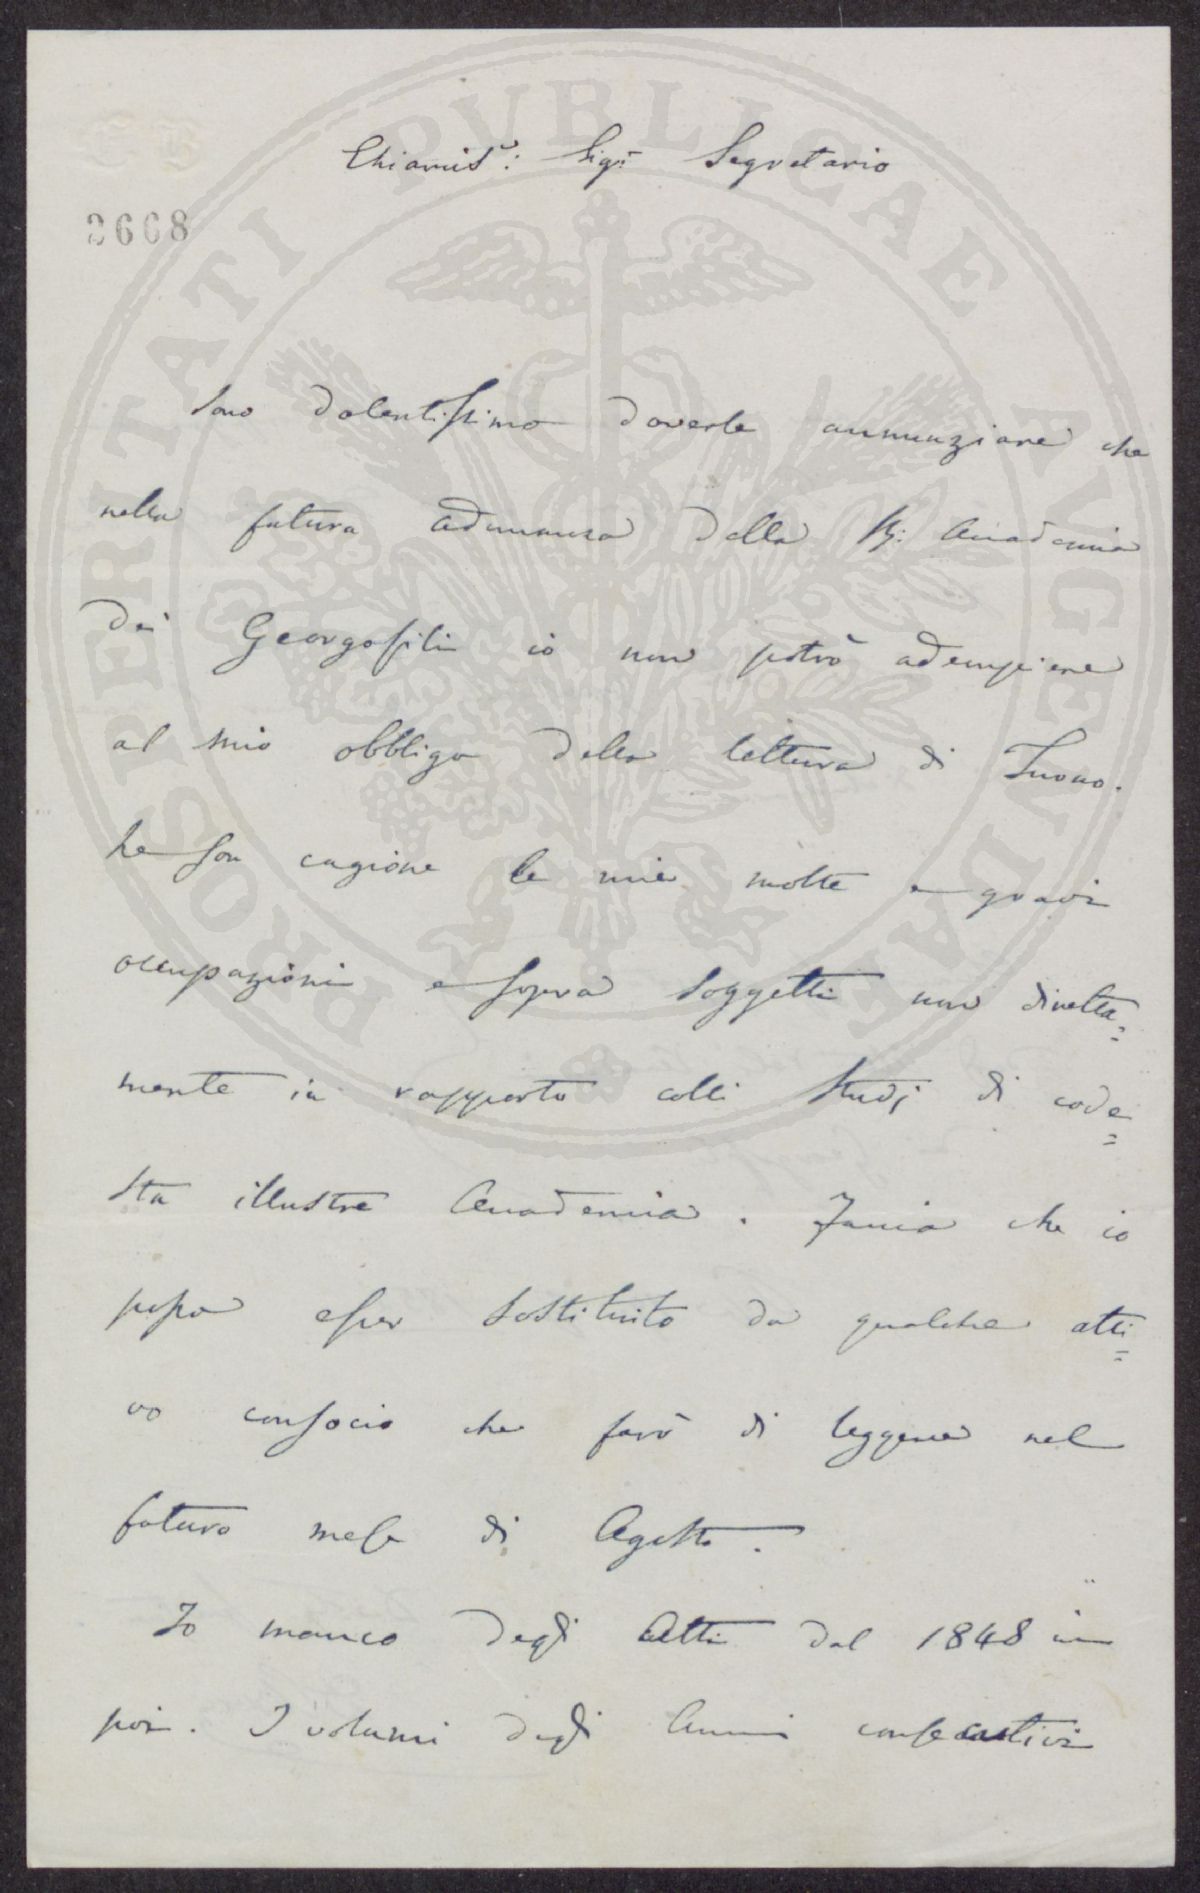 Chiaris.º: Sigr: Segretario
2608
Sono dolentissimo doverle annunziare che
nella futura adunanza della R: Accademia
dei Georgofili io non potrò adempiere
al mio obbligo della lettura di Turno.
Ne son cagione le mie molte e gravi
occupazioni e sopra soggetti non diretta=
mente in rapporto colli Studj di code=
sta illustre Accademia. Faccia che io
possa esser sostituito da qualche atti=
vo consocio che farò di leggere nel
futuro mese di Agosto.
Io manco degli Atti dal 1848 in
poi. I volumi degli Anni consecutivi
PROSPERITATI PVBLICAE AVGENDAE